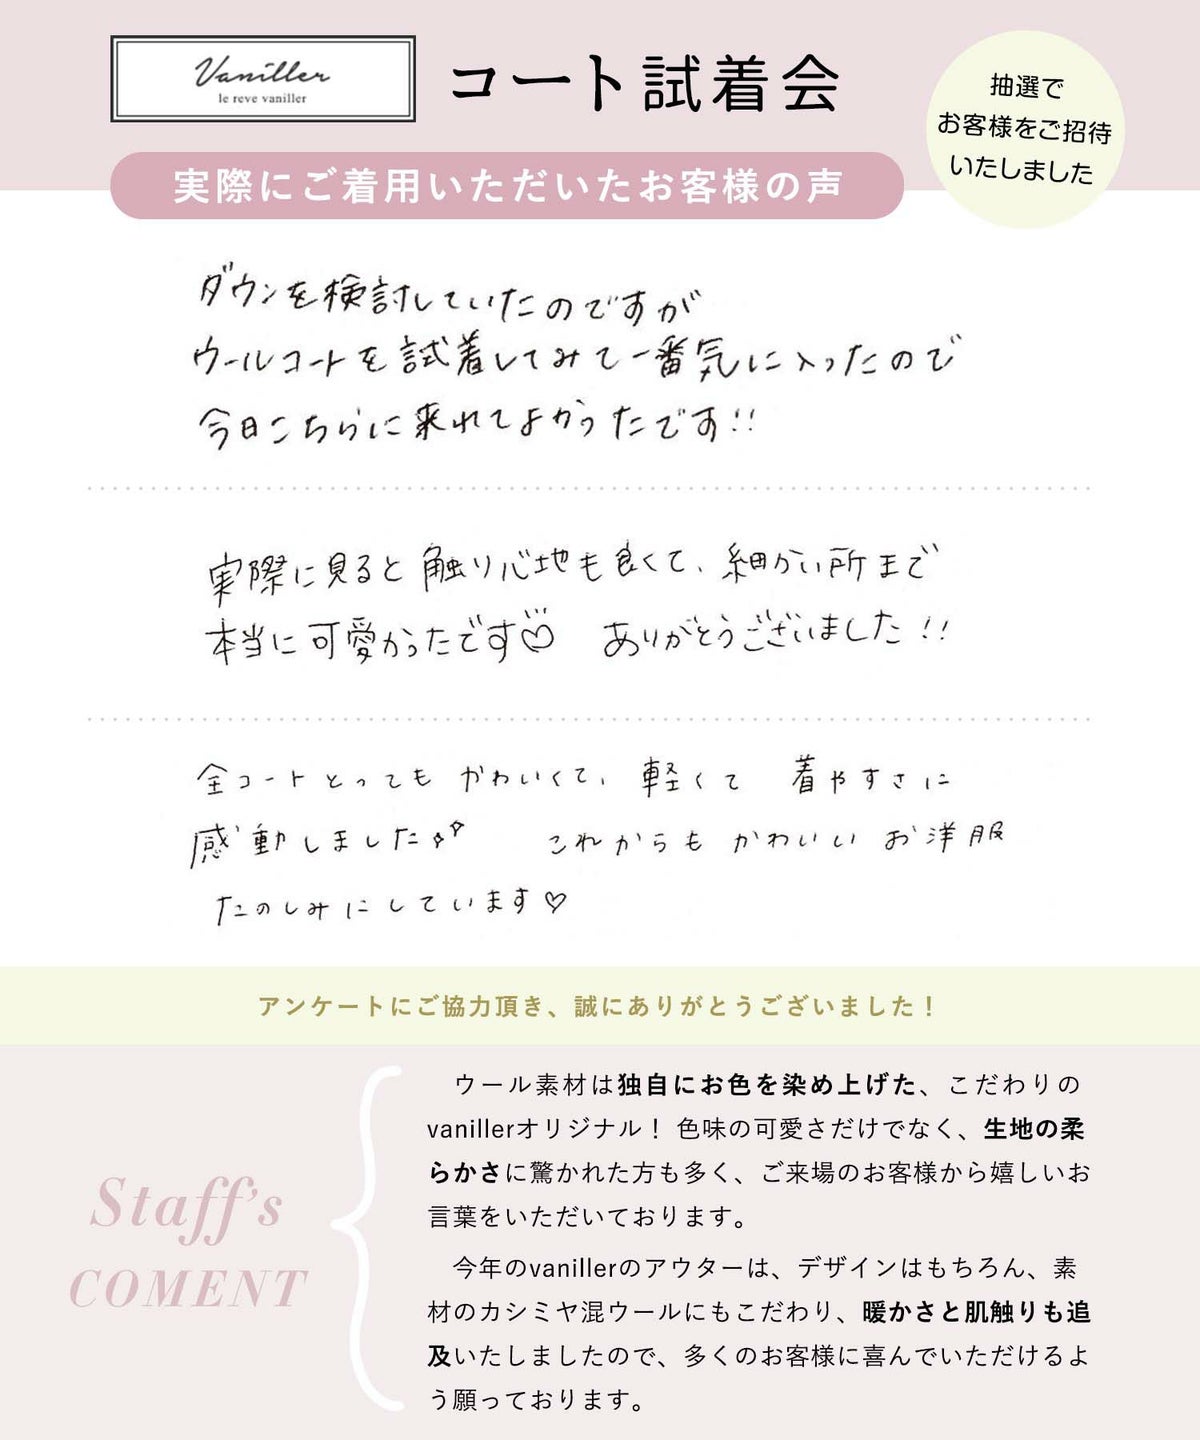 Vaniller
le reve vaniller
コート試着会
抽選で
お客様をご招待
いたしました
実際にご着用いただいたお客様の声
ダウンを検討していたのですが
ウールコートを試着してみて一番気に入ったので
今日こちらに来れてよかったです!!
実際に見ると触り心地も良くて、細かい所まで
本当に可愛かったです♡ ありがとうございました!!
全コートとってもかわいくて、軽くて 着やすさに
感動しました これからもかわいいお洋服
たのしみにしています♡
アンケートにご協力頂き、誠にありがとうございました！
Staff's
COMENT
ウール素材は独自にお色を染め上げた、こだわりの
vanillerオリジナル！ 色味の可愛さだけでなく、生地の柔
らかさに驚かれた方も多く、ご来場のお客様から嬉しいお
言葉をいただいております。
今年のvanillerのアウターは、デザインはもちろん、素
材のカシミヤ混ウールにもこだわり、暖かさと肌触りも追
及いたしましたので、多くのお客様に喜んでいただけるよ
う願っております。